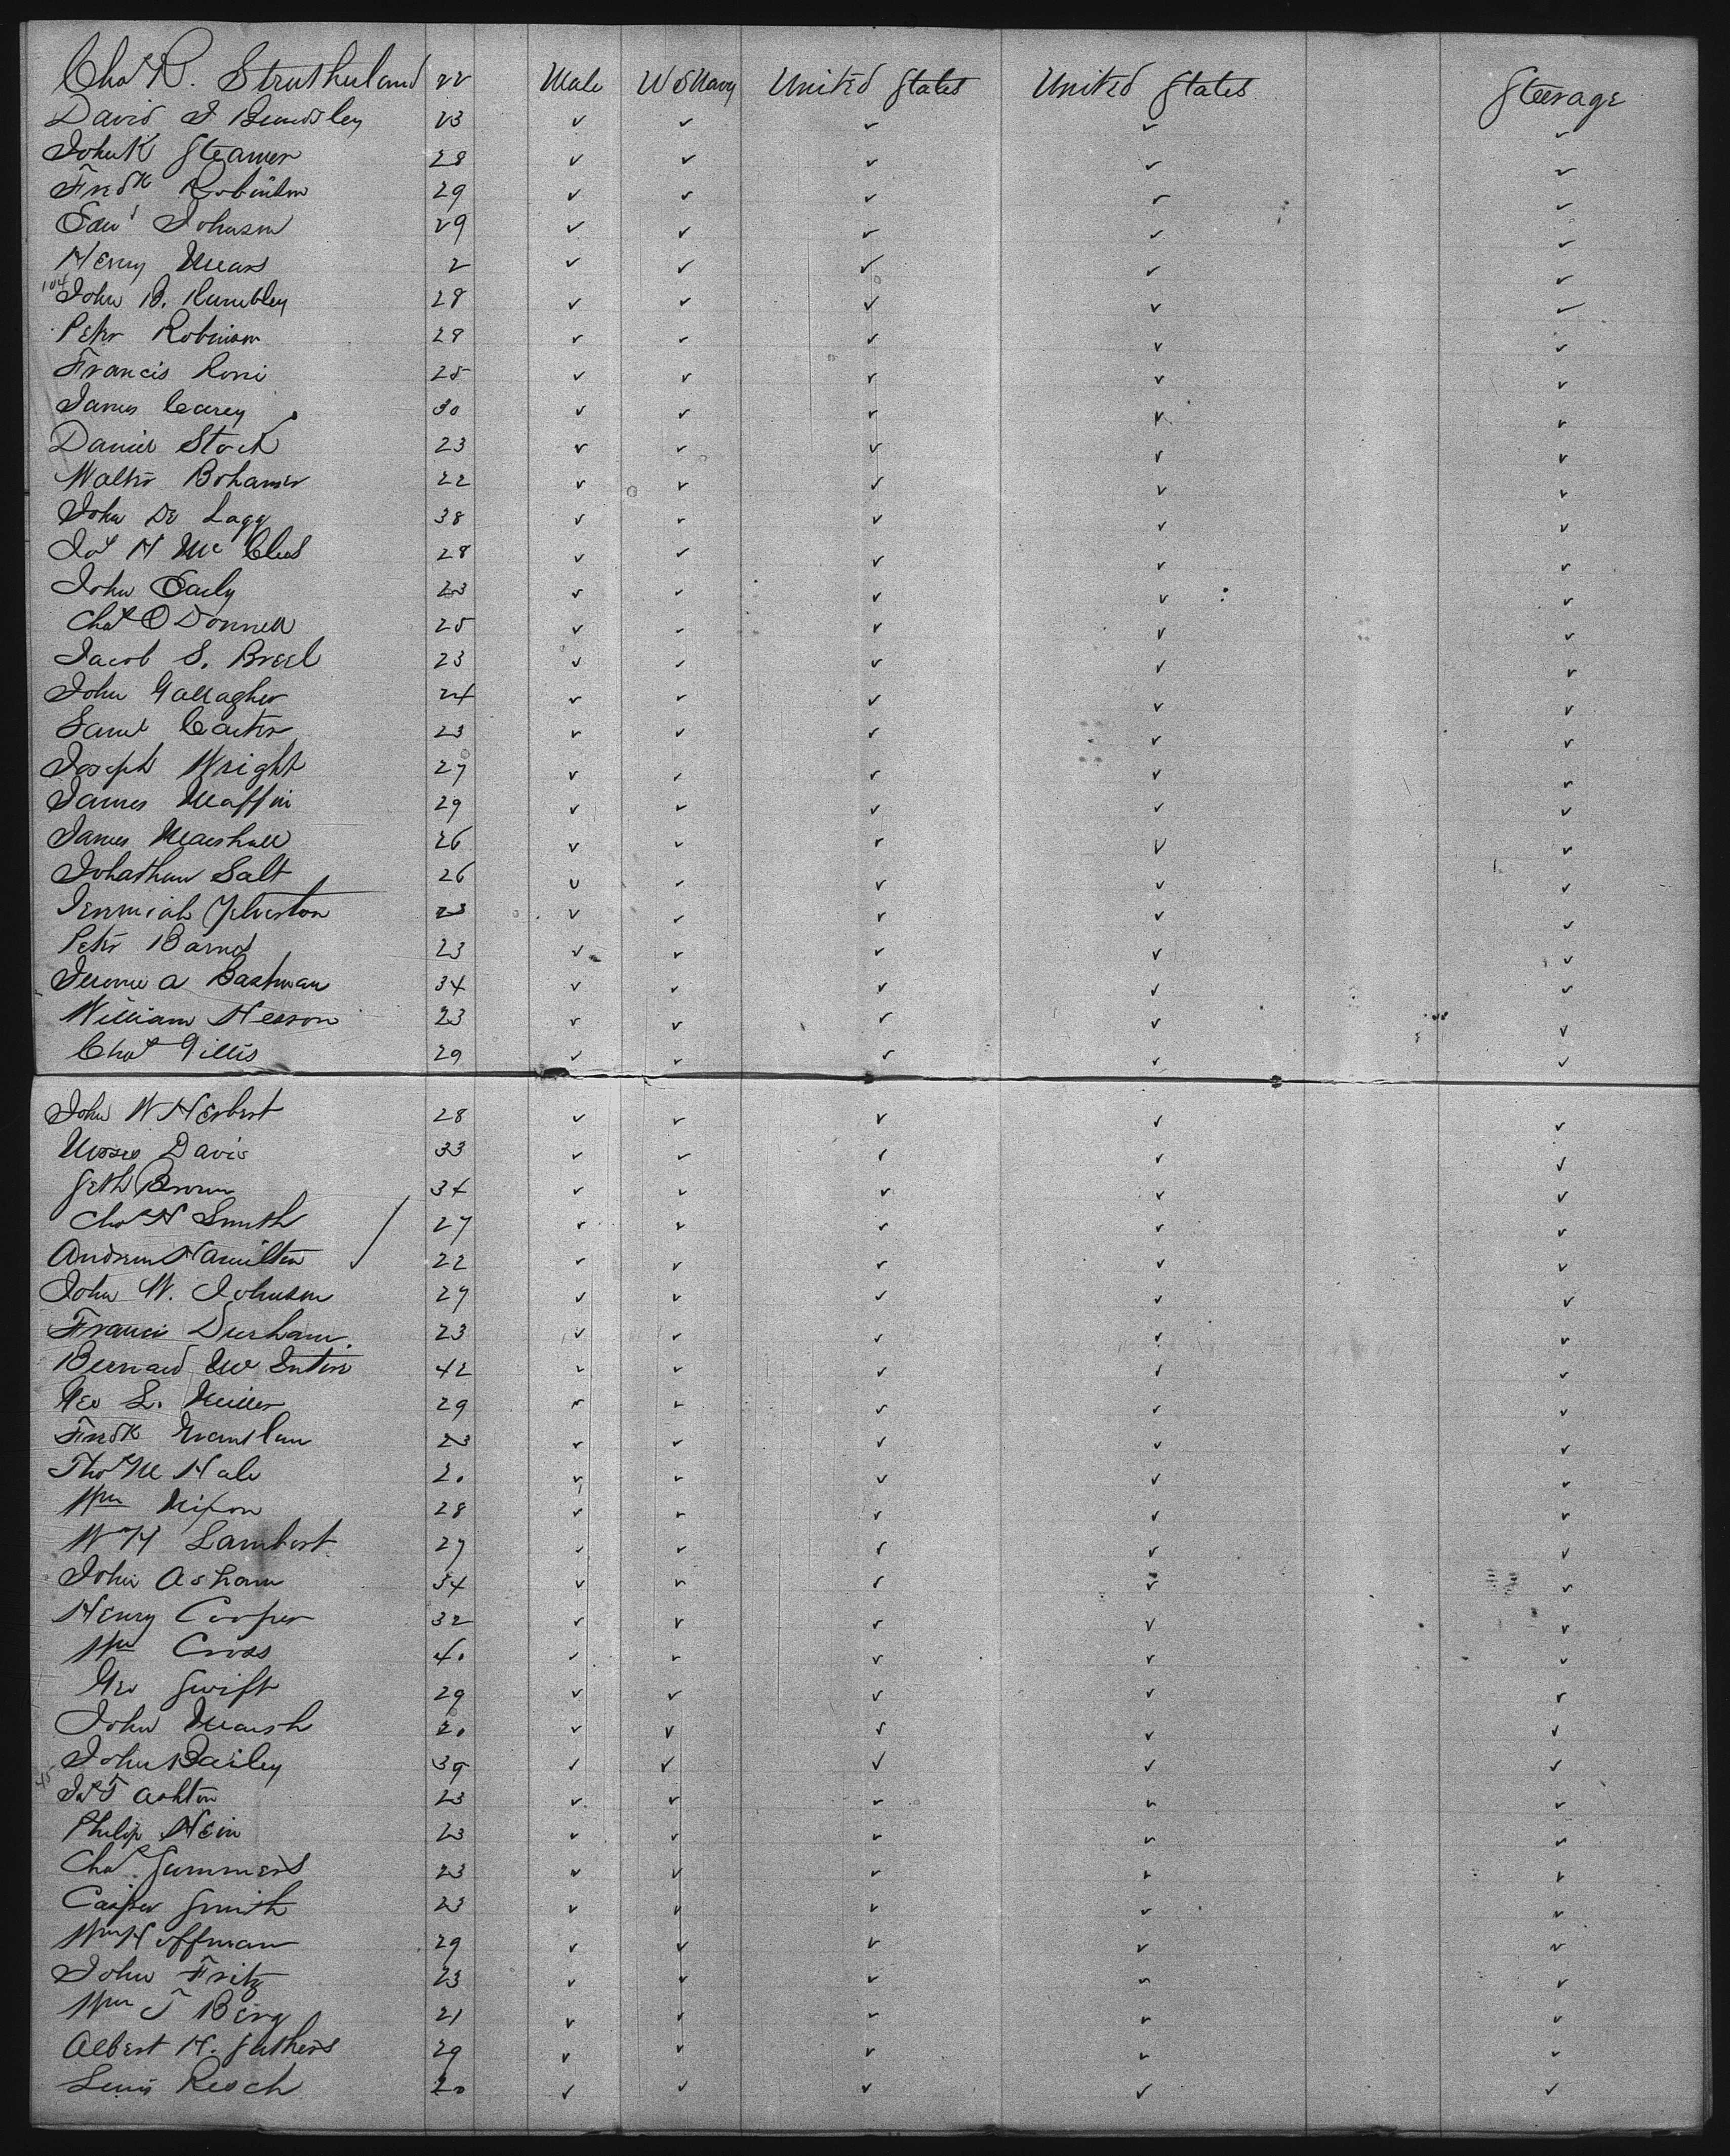 Chas R. Struthuland 22 Male U S Navy United States United States Steerage
David J 23 ✓ ✓ ✓ ✓ ✓
John K Steamer 28 ✓ ✓ ✓ ✓ ✓
Fredk Robinson 29 ✓ ✓ ✓ ✓ ✓
Edwd Johnson 29 ✓ ✓ ✓ ✓ ✓
Henry Mears 2 ✓ ✓ ✓ ✓ ✓
104 John B. Rumbley 28 ✓ ✓ ✓ ✓ ✓
Peter Robinson 28 ✓ ✓ ✓ ✓ ✓
Francis 25 ✓ ✓ ✓ ✓ ✓
James Carey 30 ✓ ✓ ✓ ✓ ✓
Daniel Stock 23 ✓ ✓ ✓ ✓ ✓
Walter Bohamer 22 ✓ ✓ ✓ ✓ ✓
John De Lagg 38 ✓ ✓ ✓ ✓ ✓
Jas H Mc 28 ✓ ✓ ✓ ✓ ✓
John Early 23 ✓ ✓ ✓ ✓ ✓
Chas O Donnell 25 ✓ ✓ ✓ ✓ ✓
Jacob S. Breel 23 ✓ ✓ ✓ ✓ ✓
John Gallagher 24 ✓ ✓ ✓ ✓ ✓
Saml Carter 23 ✓ ✓ ✓ ✓ ✓
Joseph Wright 27 ✓ ✓ ✓ ✓ ✓
James Maffin 29 ✓ ✓ ✓ ✓ ✓
James Marshall 26 ✓ ✓ ✓ ✓ ✓
Johathan Salt 26 ✓ ✓ ✓ ✓ ✓
Jeremiah Yelverton 23 ✓ ✓ ✓ ✓ ✓
Peter Barnes 23 ✓ ✓ ✓ ✓ ✓
Jerome A Bashman 34 ✓ ✓ ✓ ✓ ✓
William Nelson 23 ✓ ✓ ✓ ✓ ✓
Chas Gillis 29 ✓ ✓ ✓ ✓ ✓
John W Herbert 28 ✓ ✓ ✓ ✓ ✓
Moses Davis 33 ✓ ✓ ✓ ✓ ✓
Seth Brown 34 ✓ ✓ ✓ ✓ ✓
Chas H Smith 27 ✓ ✓ ✓ ✓ ✓
Andrew Hamilton 22 ✓ ✓ ✓ ✓ ✓
John W. Johnson 27 ✓ ✓ ✓ ✓ ✓
Francis Durham 23 ✓ ✓ ✓ ✓ ✓
Bernard Mc Entire 42 ✓ ✓ ✓ ✓ ✓
Geo L. Miller 29 ✓ ✓ ✓ ✓ ✓
Fredk 23 ✓ ✓ ✓ ✓ ✓
Thos M Hale 20 ✓ ✓ ✓ ✓ ✓
Wm Nixon 28 ✓ ✓ ✓ ✓ ✓
Wm H Lambert 27 ✓ ✓ ✓ ✓ ✓
John Asham 34 ✓ ✓ ✓ ✓ ✓
Henry Cooper 32 ✓ ✓ ✓ ✓ ✓
Wm Cross 40 ✓ ✓ ✓ ✓ ✓
Geo Swift 29 ✓ ✓ ✓ ✓ ✓
John Marsh 20 ✓ ✓ ✓ ✓ ✓
John Bailey 39 ✓ ✓ ✓ ✓ ✓
45 Jas T Ashton 23 ✓ ✓ ✓ ✓ ✓
Philip Hein 23 ✓ ✓ ✓ ✓ ✓
Chas Summers 23 ✓ ✓ ✓ ✓ ✓
Casper Smith 23 ✓ ✓ ✓ ✓ ✓
Wm Hoffman 29 ✓ ✓ ✓ ✓ ✓
John Fritz 23 ✓ ✓ ✓ ✓ ✓
Wm J Berg 21 ✓ ✓ ✓ ✓ ✓
Albert H. Suthers 29 ✓ ✓ ✓ ✓ ✓
Lewis Resch 20 ✓ ✓ ✓ ✓ ✓